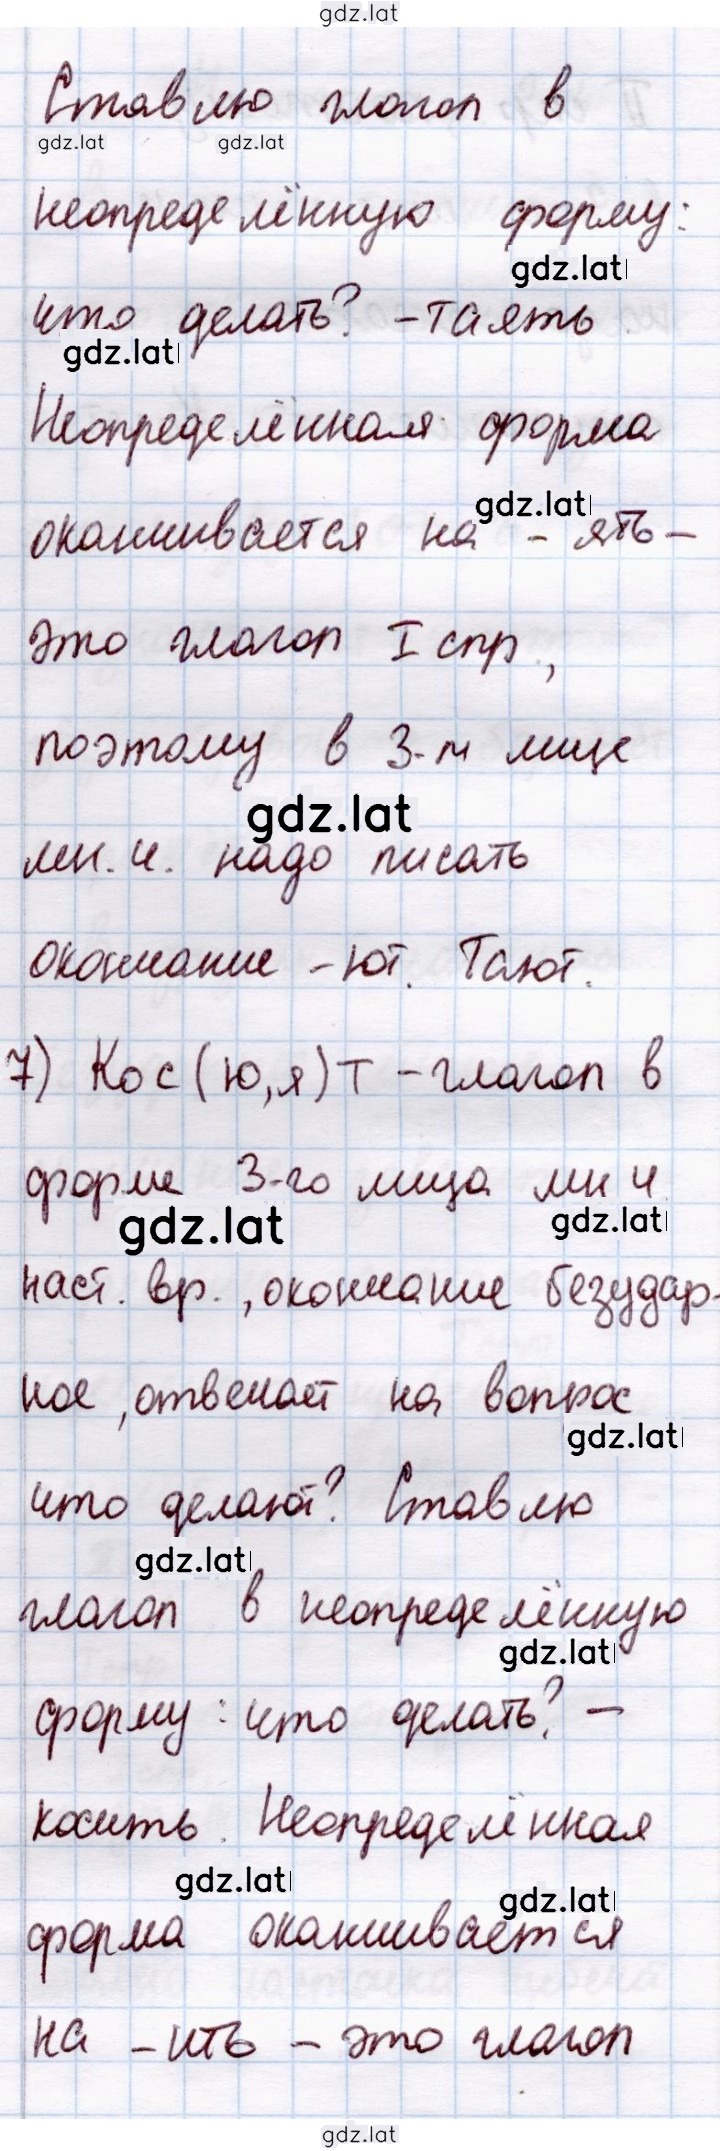 gdz.lat
Ставлю глагол в
gdz.lat gdz.lat
неопределённую форму:
gdz.lat
что делать? – таять.
gdz.lat
Неопределённая форма
gdz.lat
оканчивается на – ять –
это глагол I спр.,
поэтому в 3-м лице
gdz.lat
мн. ч. надо писать
окончание – ют. Тают.
7) Кос(ю,я)т – глагол в
форме 3-го лица мн ч
gdz.lat gdz.lat
наст. вр., окончание безудар-
ное, отвечает на вопрос
gdz.lat
что делают? Ставлю
gdz.lat
глагол в неопределённую
gdz.lat
форму: что делать? –
косить. Неопределённая
gdz.lat gdz.lat
форма оканчивается
на – ить – это глагол
gdz.lat